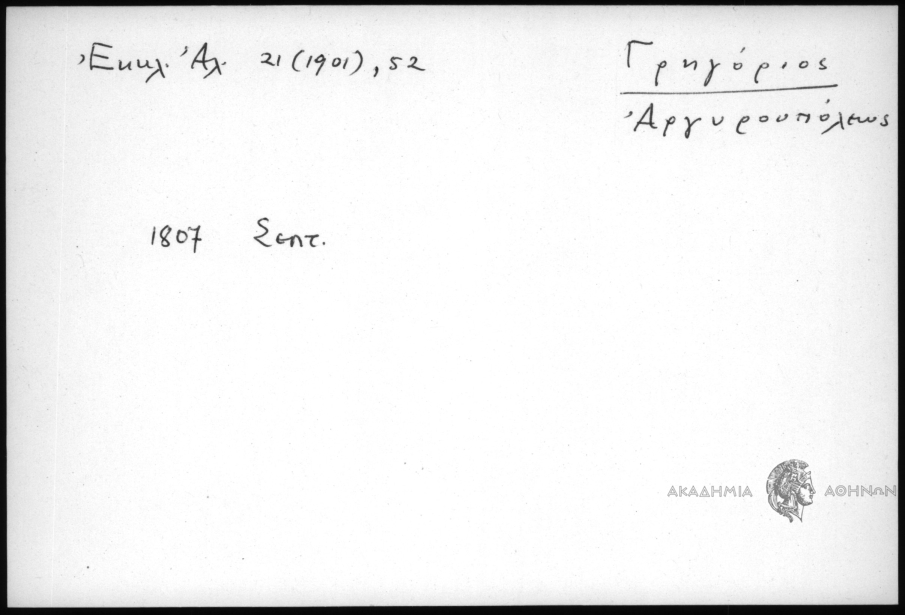 Ἐκκλ. Ἀλ. 21 (1901), 52
Γρηγόριος
Ἀργυρουπόλεως
1807 Σεπτ.
ΑΚΑΔΗΜΙΑ ΑΘΗΝΩΝ